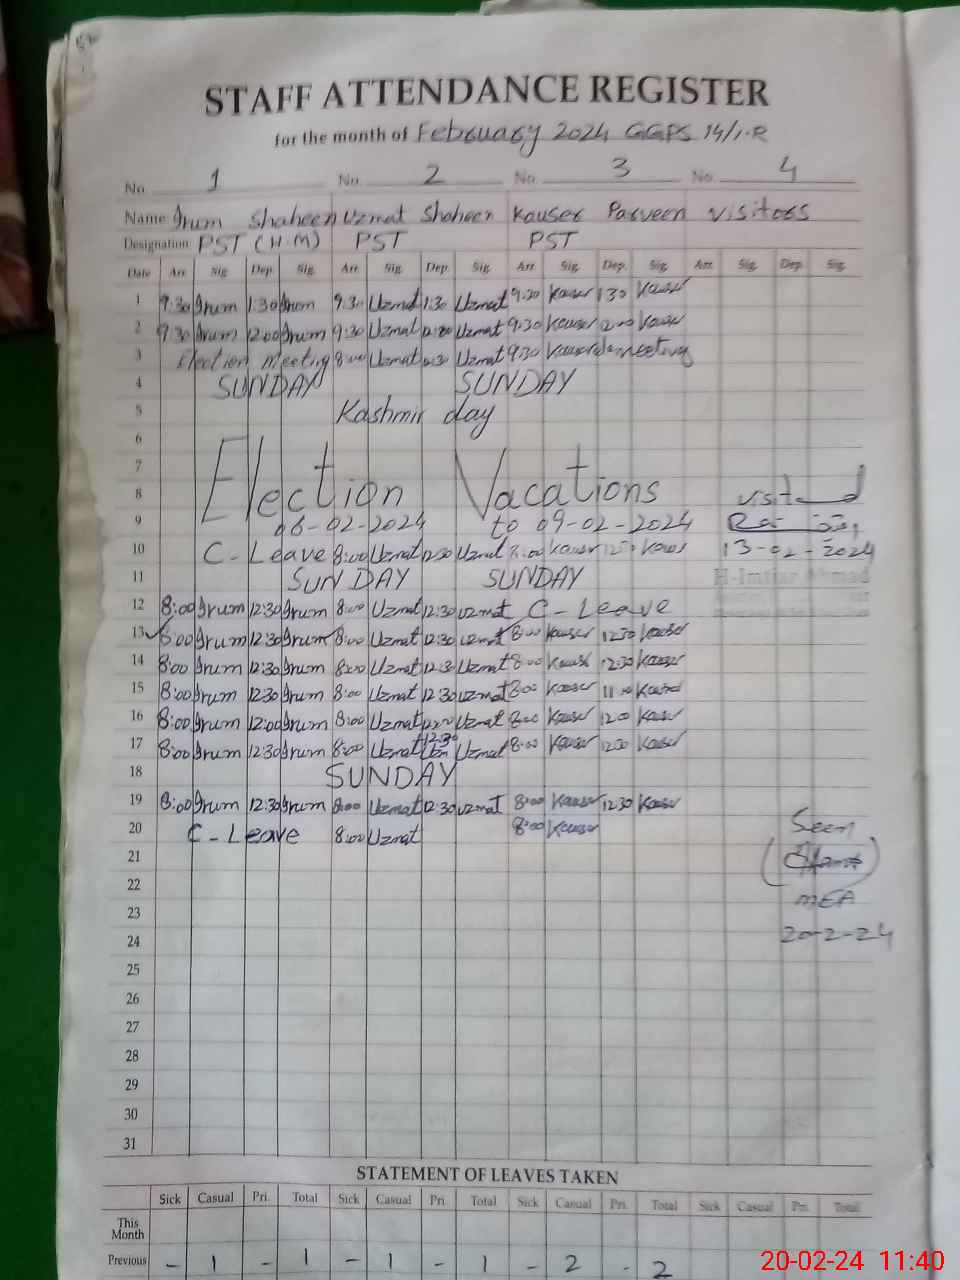 STAFF ATTENDANCE REGISTER
for the month of February 2024 GGPS 14/1-R
No. 1 No. 2 No. 3 No. 4
Name Irum Shaheen Uzmat Shaheen Kauser Parveen Visitors
Designation PST (H.M) PST PST
Date Arr. Sig. Dep. Sig. Arr. Sig. Dep. Sig. Arr. Sig. Dep. Sig. Arr. Sig. Dep. Sig.
1 9:30 Irum 1:30 Irum 9:30 Uzmat 1:30 Uzmat 9:30 Kauser 1:30 Kauser
2 9:30 Irum 12:00 Irum 9:30 Uzmat 12:00 Uzmat 9:30 Kauser 12:00 Kauser
3 Election Meeting 8:00 Uzmat Uzmat 9:30 Kauser meeting
4 SUNDAY SUNDAY
5 Kashmir day
6
7
8 Election Vacations visited
9 06-02-2024 to 09-02-2024
10 C-Leave 8:00 Uzmat 12:30 Uzmat 8:00 Kauser 12:30 Kauser 13-02-2024
11 SUNDAY SUNDAY H-Imtiaz Ahmad
12 8:00 Irum 12:30 Irum 8:00 Uzmat 12:30 Uzmat C-Leave
13 8:00 Irum 12:30 Irum 8:00 Uzmat 12:30 Uzmat 8:00 Kauser 12:30 Kauser
14 8:00 Irum 12:30 Irum 8:00 Uzmat 12:30 Uzmat 8:00 Kauser 12:30 Kauser
15 8:00 Irum 12:30 Irum 8:00 Uzmat 12:30 Uzmat 8:00 Kauser Kauser
16 8:00 Irum 12:00 Irum 8:00 Uzmat 12:00 Uzmat 8:00 Kauser 12:00 Kauser
17 8:00 Irum 12:30 Irum 8:00 Uzmat 12:30 Uzmat 8:00 Kauser 12:30 Kauser
18 SUNDAY
19 8:00 Irum 12:30 Irum 8:00 Uzmat 12:30 Uzmat 8:00 Kauser 12:30 Kauser
20 C-Leave 8:00 Uzmat 8:00 Kauser Seen
21
22
23 MEA
24 20-2-24
25
26
27
28
29
30
31
STATEMENT OF LEAVES TAKEN
Sick Casual Pri. Total Sick Casual Pri. Total Sick Casual Pri. Total Sick Casual Pri. Total
This Month
Previous - 1 - 1 - 1 - 1 - 2 - 2
20-02-24 11:40